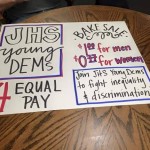 JHS
young
DEMS
4 EQUAL
PAY
BAKE SALE
$1.00 for men
$0.77 for women
Join JHS Young Dems
to fight inequality
& discrimination